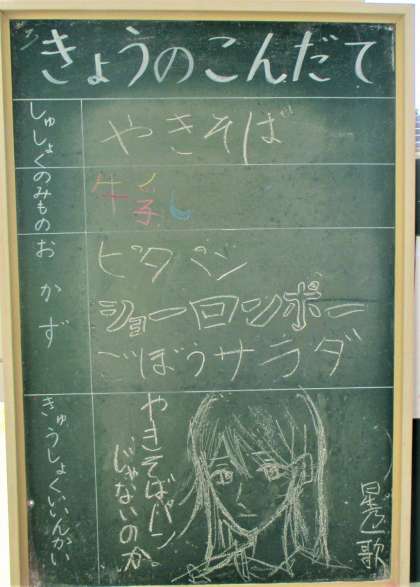 きょうのこんだて
しゅしょく
やきそば
のみもの
牛乳
おかず
ピタパン
ショーロンポー
ごぼうサラダ
きゅうしょくいいんかい
やきそばパン
じゃないのか。